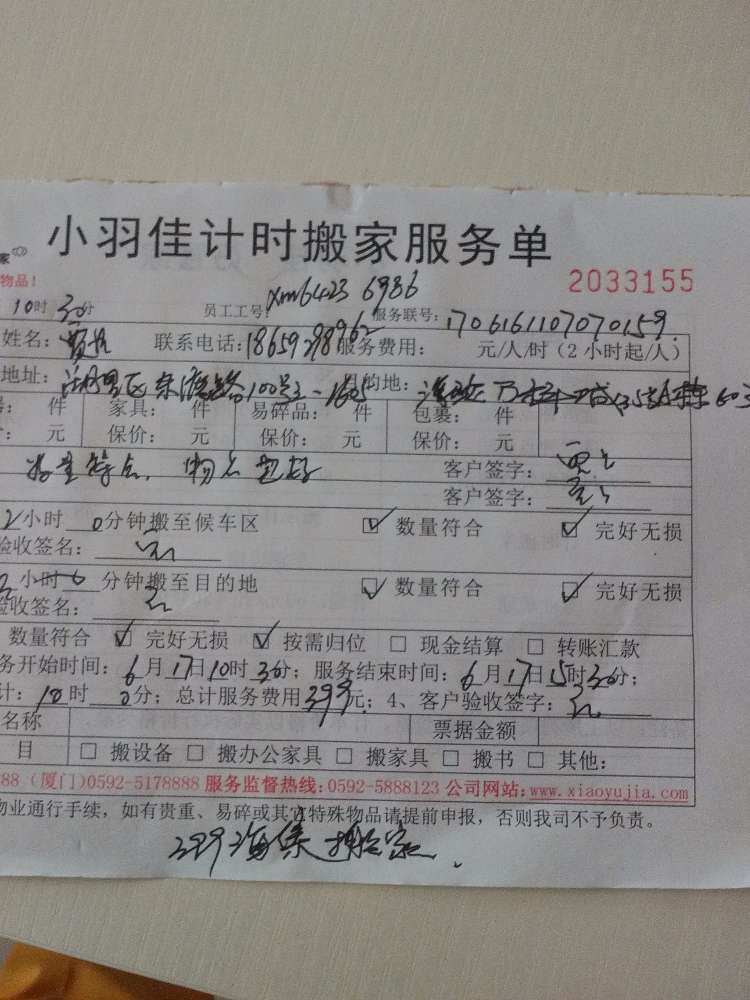 小羽佳计时搬家服务单
家
2033155
物品!
10时30分 员工工号: xm6423 6986 服务联号: 1706161107070159
姓名: 联系电话: 18659298962 服务费用: 元/人/时(2小时起/人)
地址: 湖里区 100号 目的地:
件 家具: 件 易碎品: 件 包裹: 件
元 保价: 元 保价: 元 保价: 元
数量符合, 物品完好 客户签字:
客户签字:
2小时 0分钟搬至候车区 ☑ 数量符合 ☑ 完好无损
验收签名:
小时 分钟搬至目的地 ☑ 数量符合 ☑ 完好无损
验收签名:
数量符合 ☑ 完好无损 ☑ 按需归位 □ 现金结算 □ 转账汇款
务开始时间: 6月17日10时30分; 服务结束时间: 6月17日15时30分;
计: 10时 0分; 总计服务费用399元; 4、客户验收签字:
名称 票据金额
目 □ 搬设备 □ 搬办公家具 □ 搬家具 □ 搬书 □ 其他:
88 (厦门)0592-5178888 服务监督热线:0592-5888123 公司网站:www.xiaoyujia.com
物业通行手续, 如有贵重、易碎或其它特殊物品请提前申报, 否则我司不予负责。
399 搬家